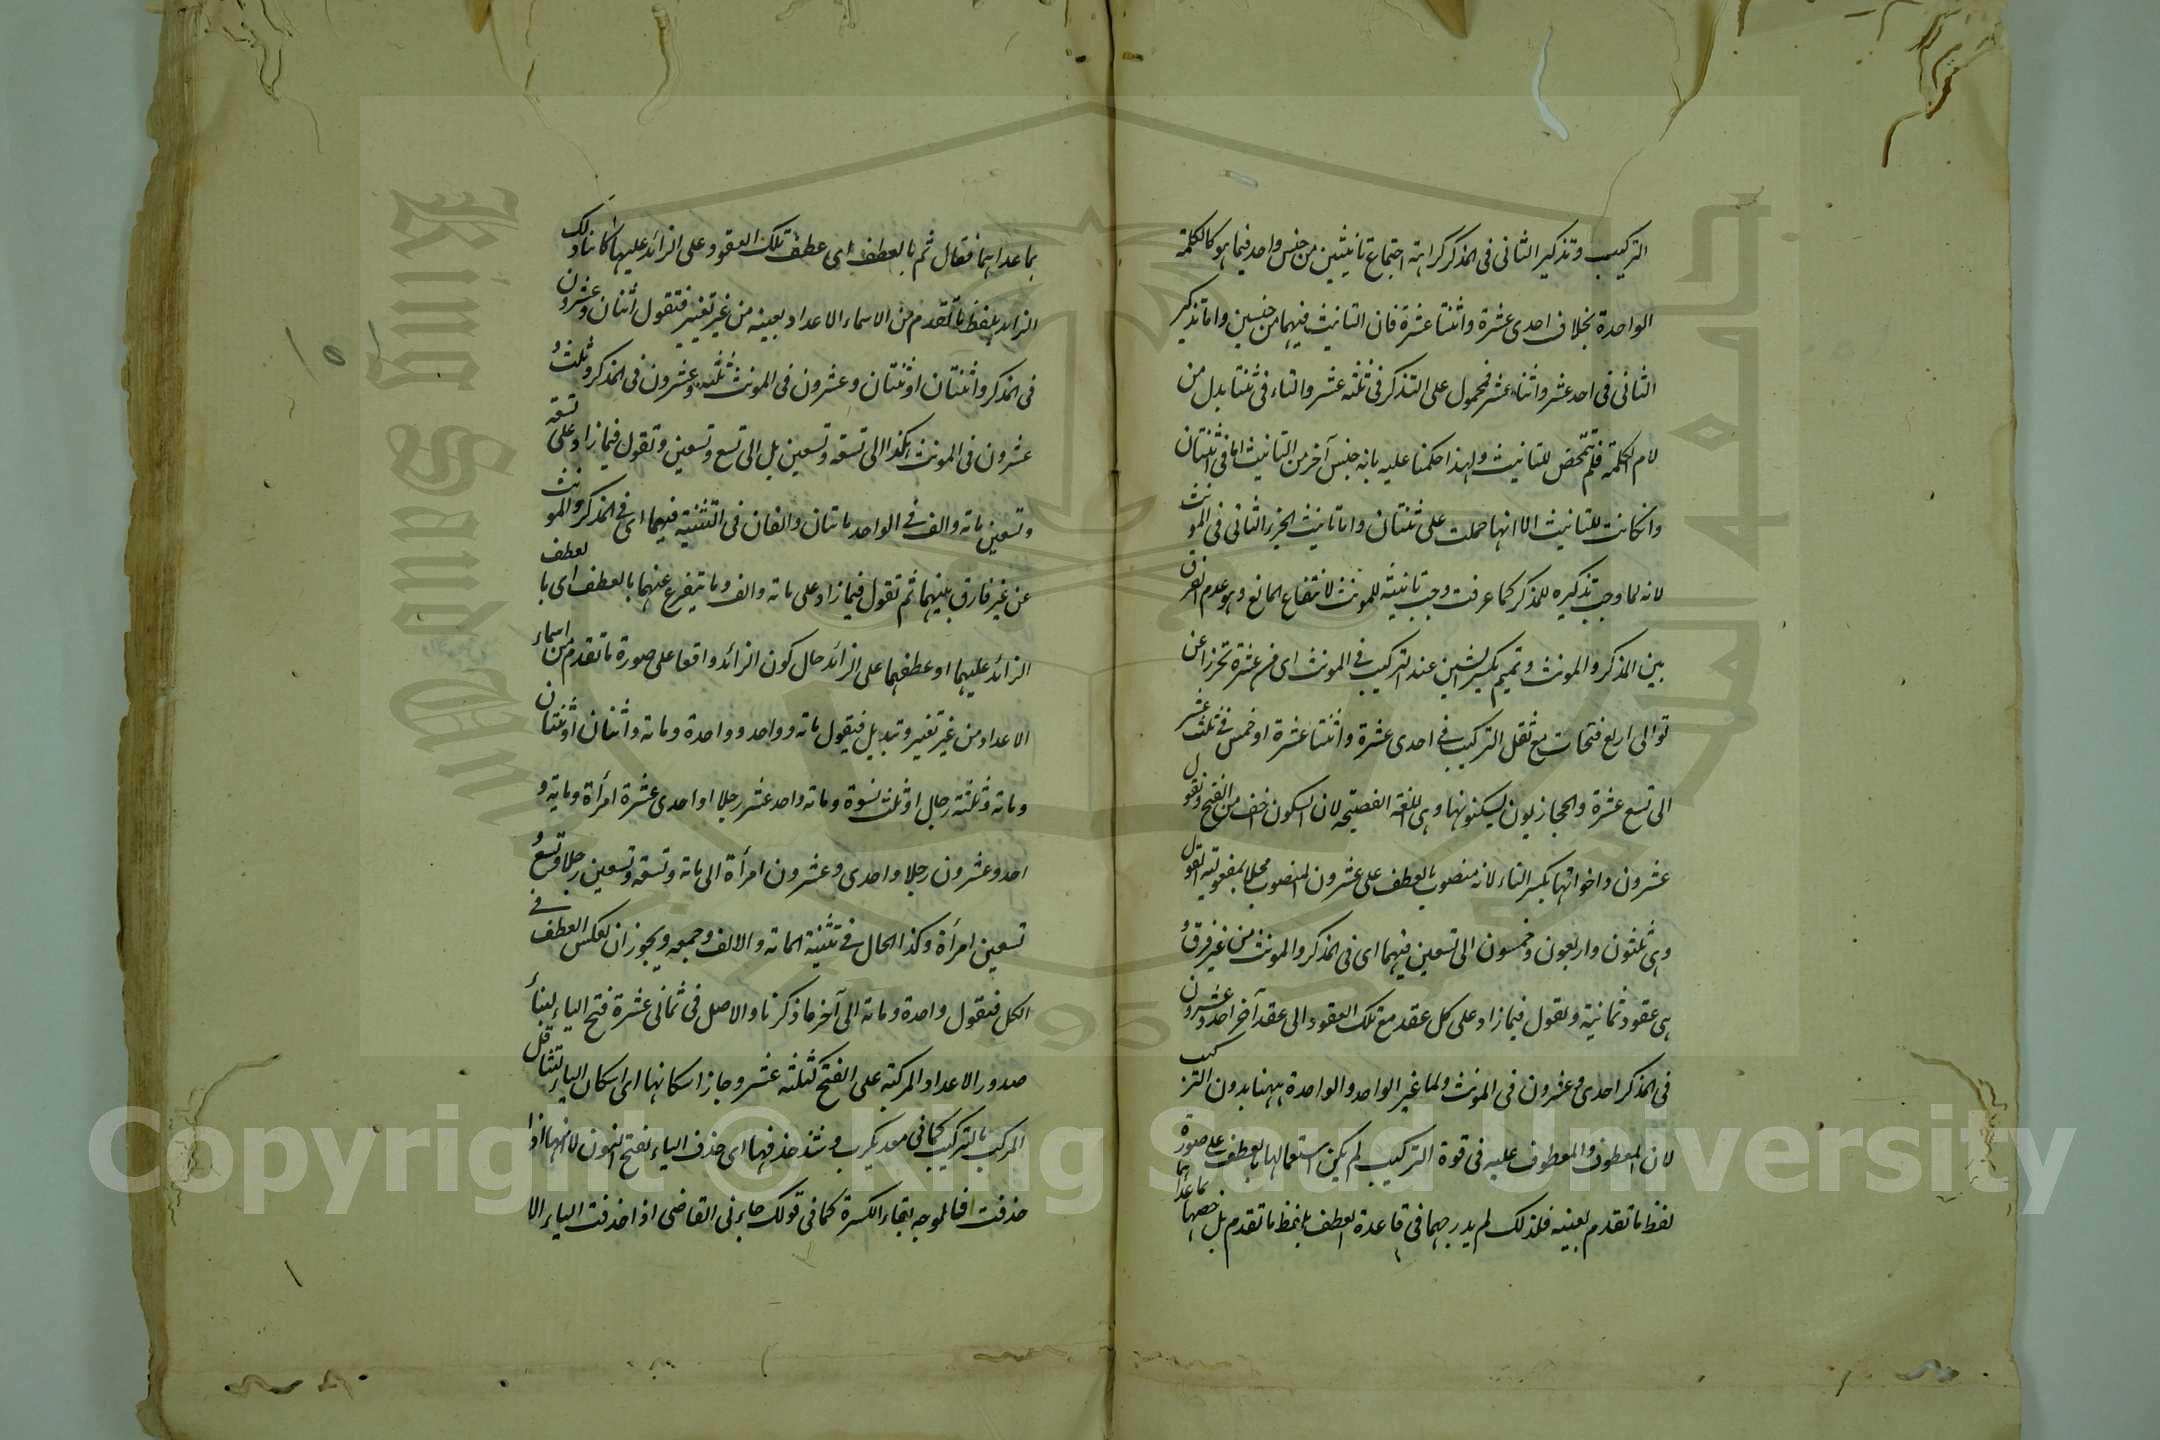 التركيب وتذكير الثانى فى المذكر كراهة اجتماع تأنيثين من جنس واحد فيما هو كالكلمة
الواحدة بخلاف احدى عشرة واثنتا عشرة فان التانيث فيهما من جنسين واما تذكير
الثانى فى احد عشر واثنا عشر فمحمول على التذكر فى ثلثه عشر والتاء فى ثنتا بدل من
لام الكلمة فلم تتمحض للتانيث ولهذا حكمنا عليه بانه جنس آخر من التانيث اما فى اثنتان
وانكانت للتانيث الا انها حملت على ثنتان واما تانيث الجزء الثانى فى المونث
لانه لما وجب تذكيره للمذكر كما عرفت وجب تانيثه للمونث لانتفاع المانع وهو عدم الفرق
بين المذكر والمونث وتميم يكسر الشين عند التركيب فى المونث اى فى عشرة تحرزا عن
توالى اربع فتحات مع ثقل التركيب فى احدى عشرة واثنتا عشرة او خمس فى ثلث عشر
الى تسع عشرة والحجازيون يسكنونها وهى اللغة الفصيحة لان السكون اخف من الفتح وتقول
عشرون واخواتها بكسر التاء لانه منصوب بالعطف على عشرون المنصوب محلا بمفعولية لتقول
وهى ثلثون واربعون وخمسون الى تسعين فيهما اى فى المذكر والمونث من غير فرق و
هى عقود ثمانية وتقول فيما زاد على كل عقد مع تلك العقود الى عقد آخر احد وعشرون
فى المذكر احدى وعشرون فى المونث ولما غير الواحد والواحدة ههنا بدون التركيب
لان المعطوف والمعطوف عليه فى قوة التركيب لم يكن استعمالها بالعطف على صورة
لفظ ما تقدم بعينه فلذلك لم يدرجهما فى قاعدة العطف بلفظ ما تقدم بل خصها بما عداهما
بما عداهما فقال ثم بالعطف اى عطف تلك العقود على الزائد عليها كائنا ذلك
الزائد بلفظ ما تقدم من الاسماء الاعداد بعينه من غير تغيير فتقول اثنان وعشرون
فى المذكر واثنتان او ثنتان وعشرون فى المونث ثلثه وعشرون فى المذكر وثلث و
عشرون فى المونث هكذا الى تسعة وتسعين بل الى تسع وتسعين وتقول فيما زاد على تسعة
وتسعين مائة والف فى الواحد مائتان والفان فى التثنية فيهما اى فى المذكر والمونث
من غير فارق بينهما ثم تقول فيما زاد على مائة والف وما يتفرع عنهما بالعطف اى بالعطف
الزائد عليهما او عطفهما على الزائد حال كون الزائد واقعا على صورة ما تقدم من اسماء
الاعداد من غير تغيير وتبديل فيقول مائة وواحد وواحدة ومائة واثنان او ثنتان
ومائة وثلثة رجال او ثلث نسوة ومائة واحد عشر رجلا او احدى عشرة امرأة ومائة و
احد وعشرون رجلا واحدى وعشرون امرأة الى مائة وتسعة وتسعين رجلا وتسع و
تسعين امرأة وكذا الحال فى تثنية المائة والالف وجمعه ويجوز ان يعكس العطف فى
الكل فتقول واحدة ومائة الى آخر ما ذكرنا والاصل فى ثمانى عشرة فتح الياء لبناء
صدور الاعداد المركبة على الفتح كثلثه عشر وجاز اسكانها اى اسكان الياء لتثاقل
المركب بالتركيب كما فى معديكرب وشذ حذفها اى حذف الياء بفتح النون لانها اذا
حذفت فالموجه بقاء الكسرة كما فى قولك جاءنى القاضى اذا حذفت الياء الا
Copyright © King Saud University
King Saud University
1957